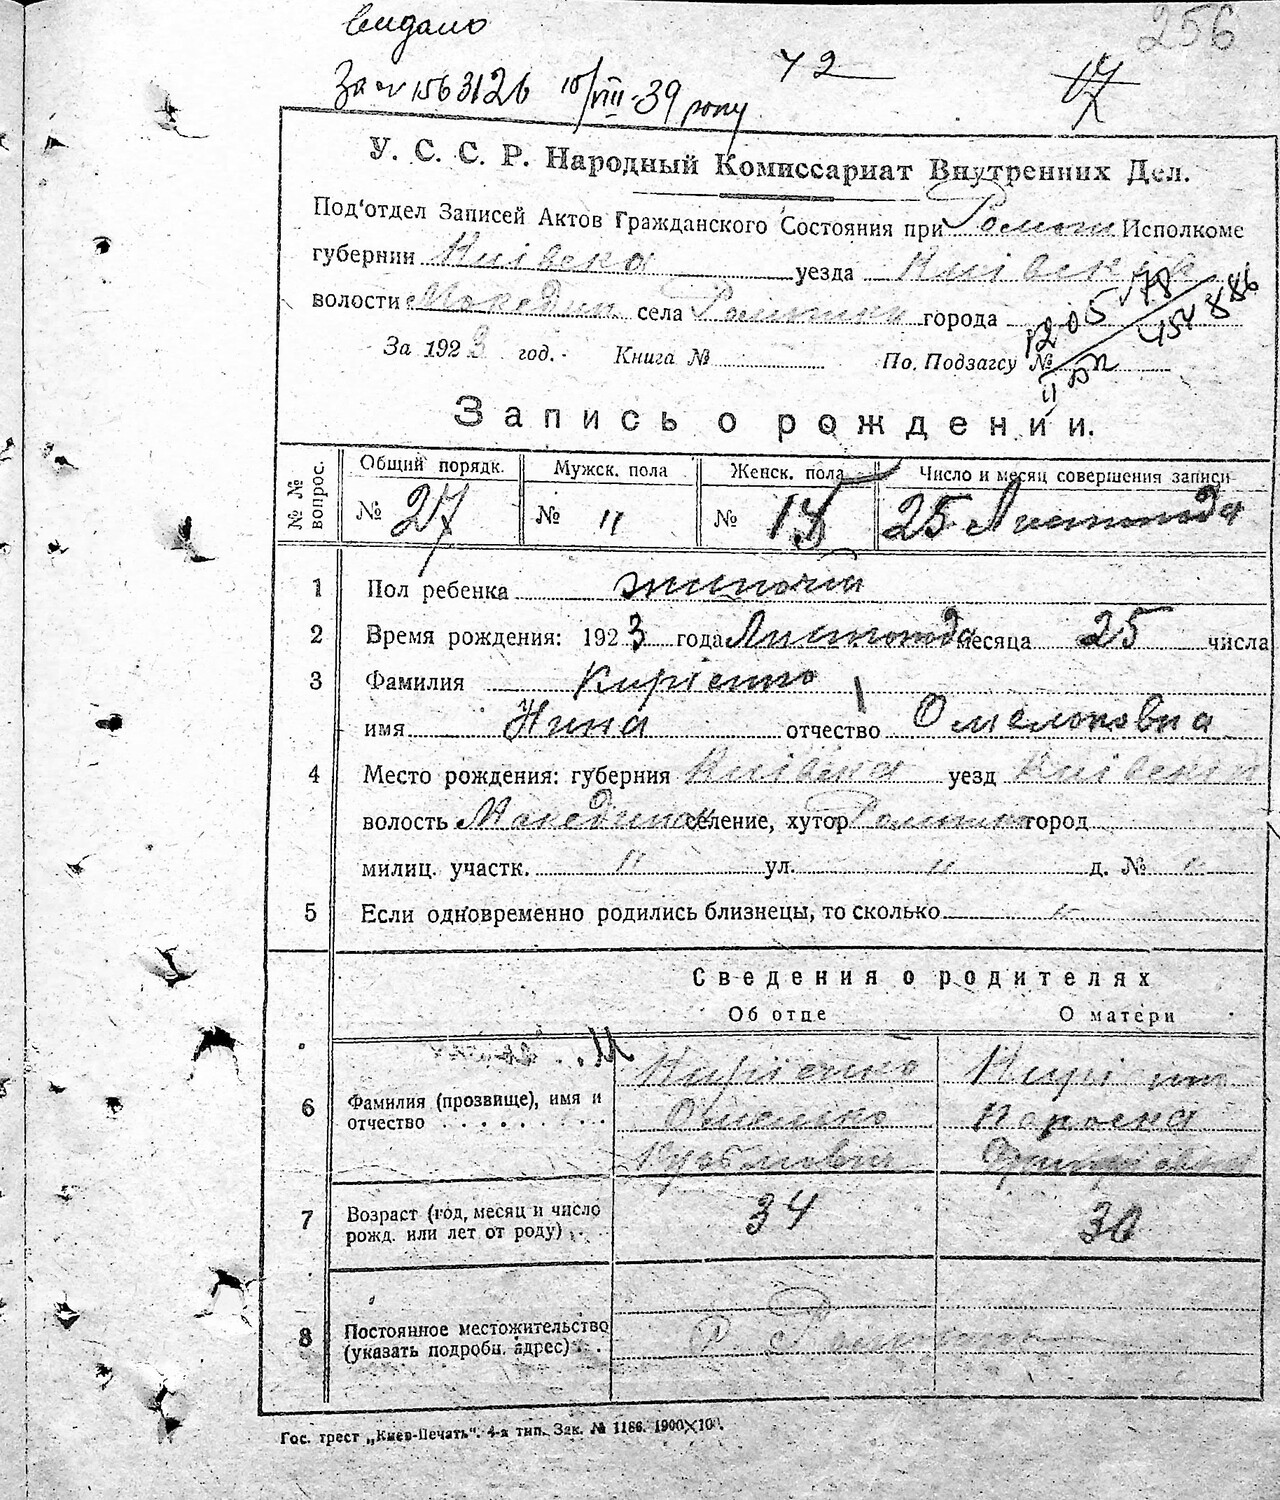 видано
За № 1563126 10/VIII-39 року
72
17
256
У. С. С. Р. Народный Комиссариат Внутренних Дел.
Под'отдел Записей Актов Гражданского Состояния при Исполкоме
губернии Київска уезда Київский
волости села города
За 1923 год. Книга № По. Подзагсу №
Запись о рождении.
№ № вопрос. Общий порядк. Мужск. пола Женск. пола Число и месяц совершения записи
№ 27 № " № 15 25 Листопада
1 Пол ребенка жиночий
2 Время рождения: 1923 года Листопада месяца 25 числа
3 Фамилия Кирієнко
имя Нина отчество Омельковна
4 Место рождения: губерния Київска уезд Київский
волость селение, хутор город
милиц. участк. " ул. " д. № "
5 Если одновременно родились близнецы, то сколько "
Сведения о родителях
Об отце О матери
6 Фамилия (прозвище), имя и Кирієнко Кирієнко
отчество . . . . . . . . . Омелько
Кузьмович
7 Возраст (год, месяц и число 34 30
рожд. или лет от роду) . .
8 Постоянное местожительство
(указать подробн. адрес) . .
Гос. трест „Киев-Печать". 4-я тип. Зак. № 1166. 1900×100.